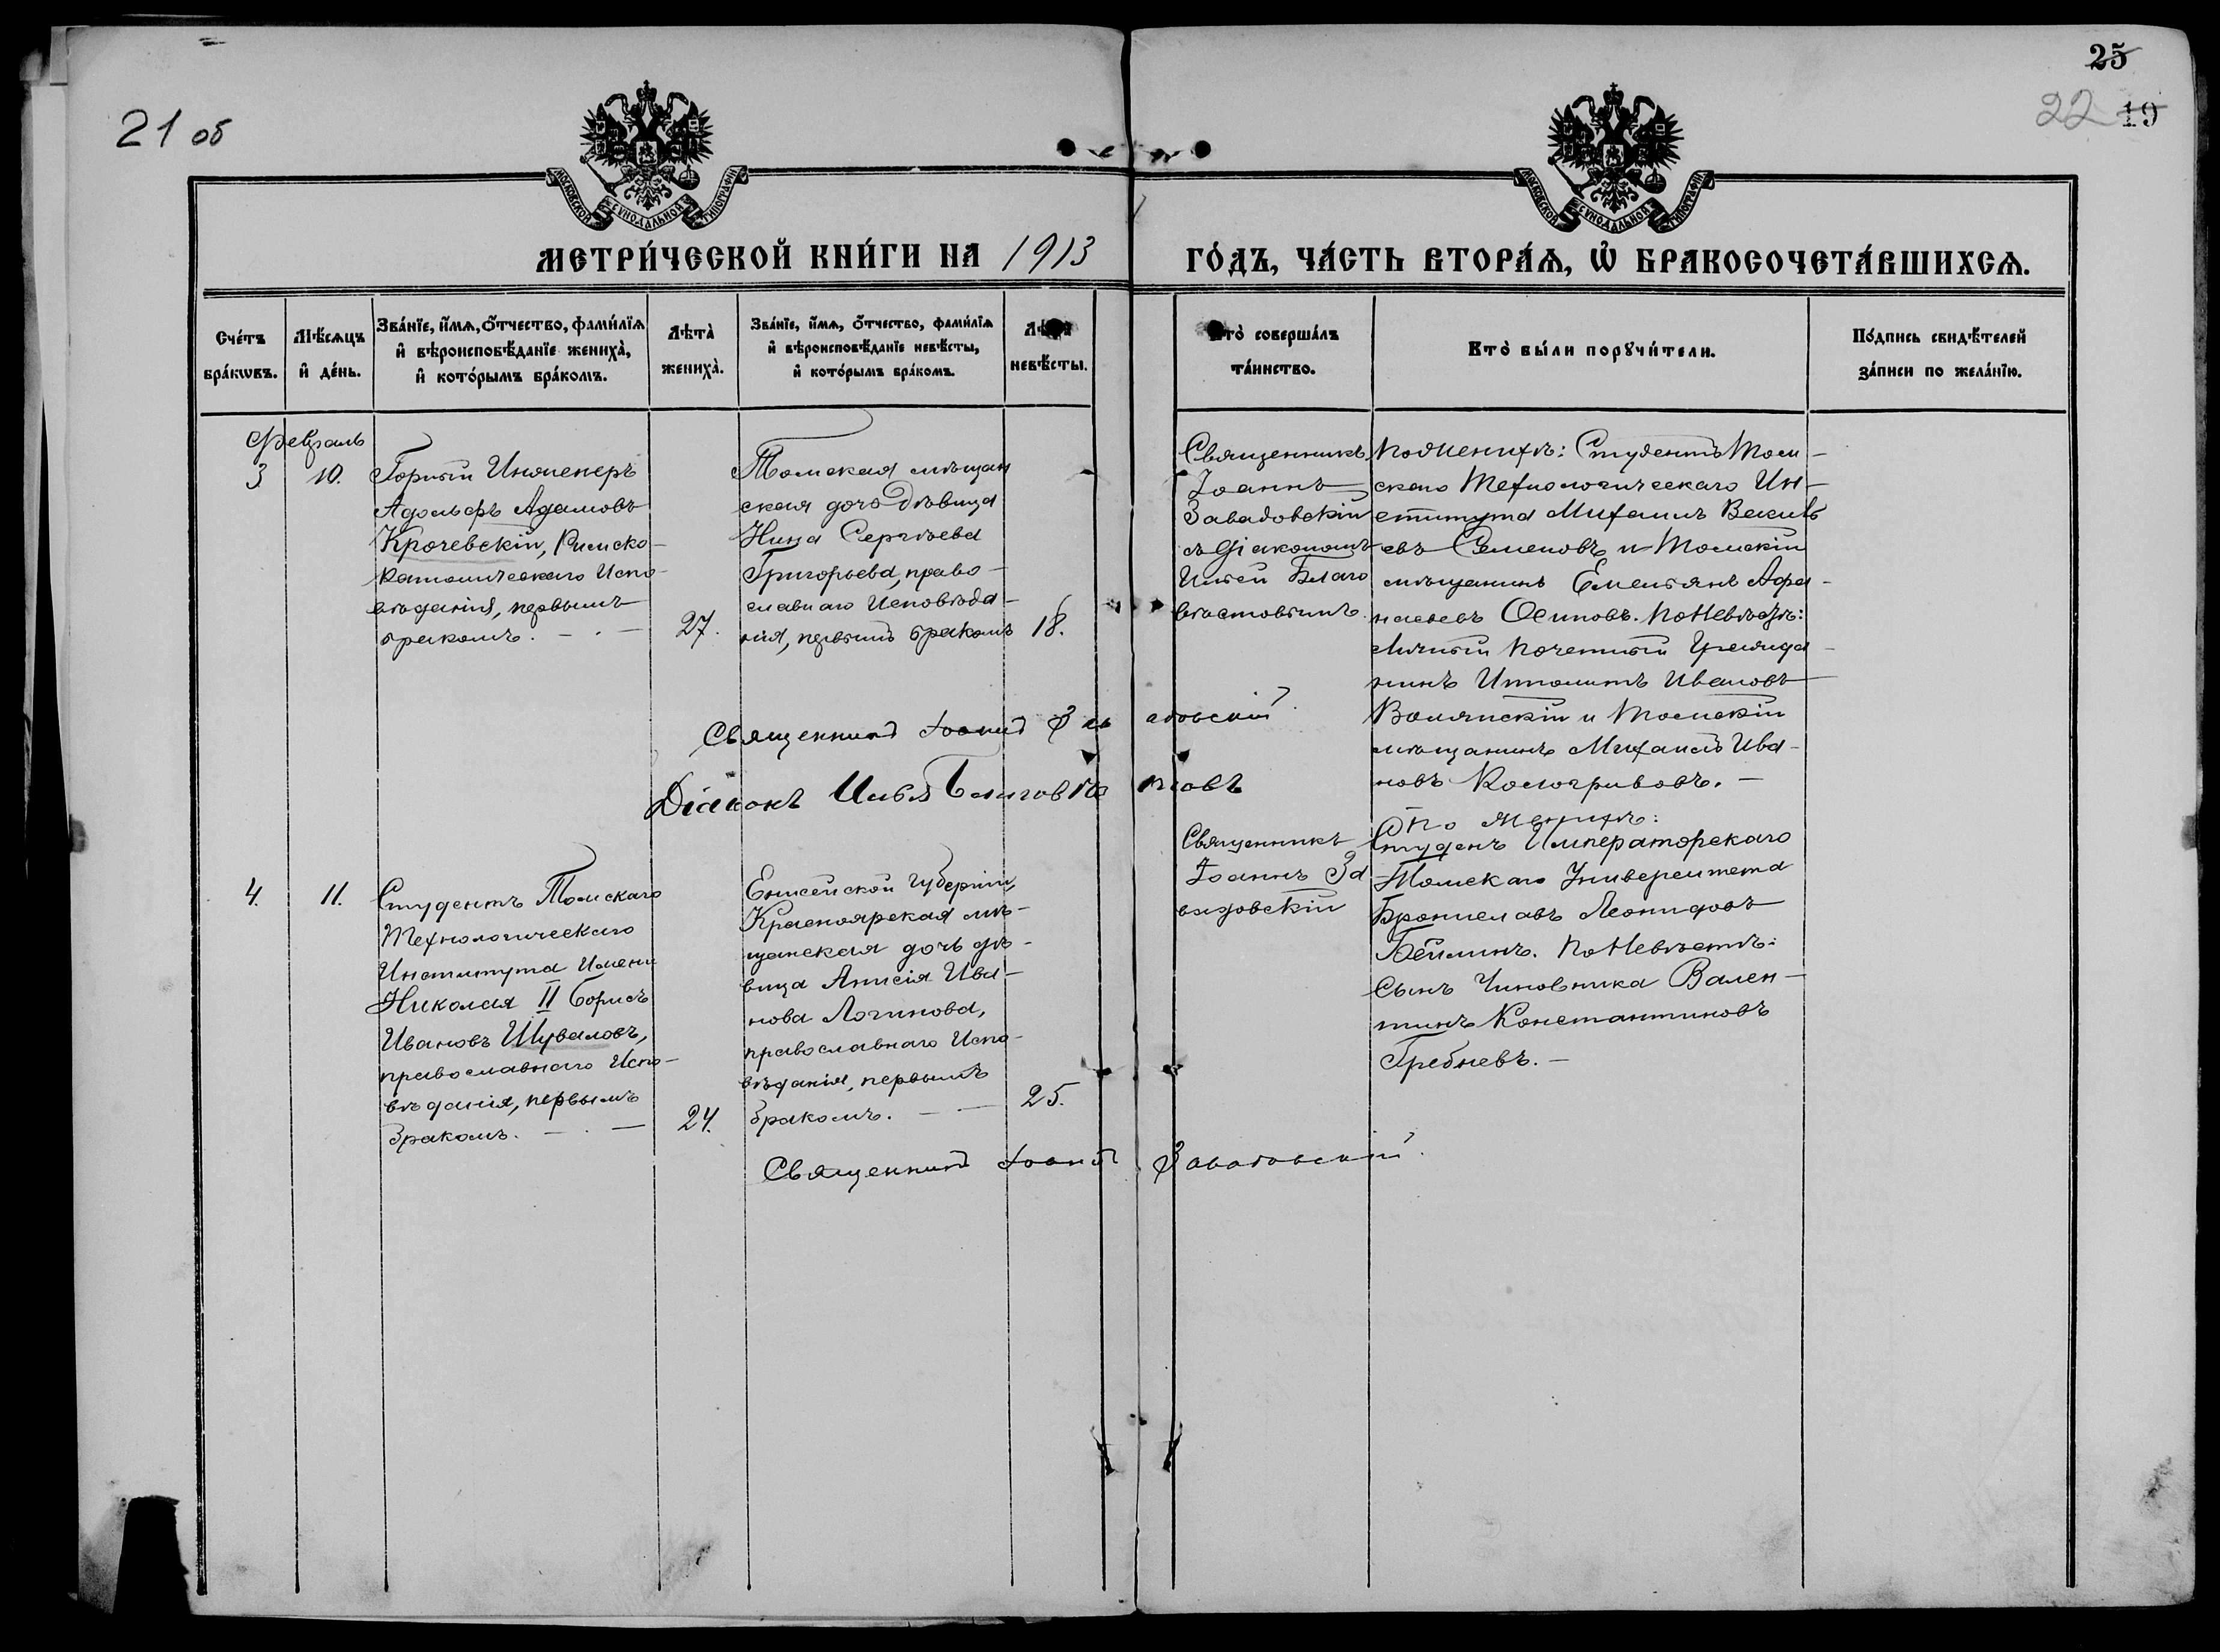 21 об
25
22 19
МОСКОВСКОЙ СѴНОДАЛЬНОЙ ТИПОГРАФІИ
МОСКОВСКОЙ СѴНОДАЛЬНОЙ ТИПОГРАФІИ
МЕТРИ́ЧЕСКОЙ КНИ́ГИ НА 1913
ГО́ДЪ, ЧА́СТЬ ВТОРА́Ѧ, Ѽ БРАКОСОЧЕТА́ВШИХСѦ.
Сче́тъ
бра́кѡвъ.
Мѣ́сѧцъ
и҆ де́нь.
Зва́нїе, и҆́мѧ, ѻ҆́тчество, фами́лїѧ
и҆ вѣроисповѣ́данїе жениха̀,
и҆ кото́рымъ бра́комъ.
Лѣта̀
жениха̀.
Зва́нїе, и҆́мѧ, ѻ҆́тчество, фами́лїѧ
и҆ вѣроисповѣ́данїе невѣ́сты,
и҆ кото́рымъ бра́комъ.
Лѣта̀
невѣ́сты.
Кто̀ соверша́лъ
та́инство.
Кто̀ бы́ли порꙋчи́тели.
По́дпись свидѣ́телей
за́писи по жела́нїю.
Февраль
3.
10.
Горный Инженеръ
Адольфъ Адамовъ
Крочевскій, Римско-
католическаго Испо-
вѣданія, первымъ
бракомъ. - . -
27.
Томская мѣщан
ская дочь Дѣвица
Нина Сергѣева
Григорьева, право-
славнаго Исповѣда-
нія, первымъ бракомъ
18.
Священникъ
Іоаннъ
Завадовскій
съ Діакономъ
Иліей Благо
вѣстовымъ.
По Женихѣ: Студентъ Том-
скаго Технологическаго Ин-
ститута Михаилъ Василь
евъ Семеновъ и Томскій
мѣщанинъ Емельянъ Афа-
насьевъ Осиповъ. По Невѣстѣ:
Личный Почетный Гражда-
нинъ Ипполитъ Ивановъ
Волянскій и Томскій
мѣщанинъ Михаилъ Ива-
новъ Кологривовъ. -
Священникъ Іоаннъ Завадовскій.
Діаконъ Илья Благовѣстовъ
4.
11.
Студентъ Томскаго
Технологическаго
Института Имени
Николая II Борисъ
Ивановъ Шуваловъ,
православнаго Испо-
вѣданія, первымъ
бракомъ. - . -
24.
Енисейской Губерніи,
Красноярская мѣ-
щанская дочь дѣ-
вица Анисія Ива-
нова Логинова,
православнаго Испо-
вѣданія, первымъ
бракомъ. - -
25.
Священникъ
Іоаннъ За
вадовскій
По Женихѣ:
Студенъ Императорскаго
Томскаго Университета
Брониславъ Леонидовъ
Бейлинъ. По Невѣстѣ:
Сынъ Чиновника Вален-
тинъ Константиновъ
Гребневъ. -
Священникъ Іоаннъ Завадовскій.